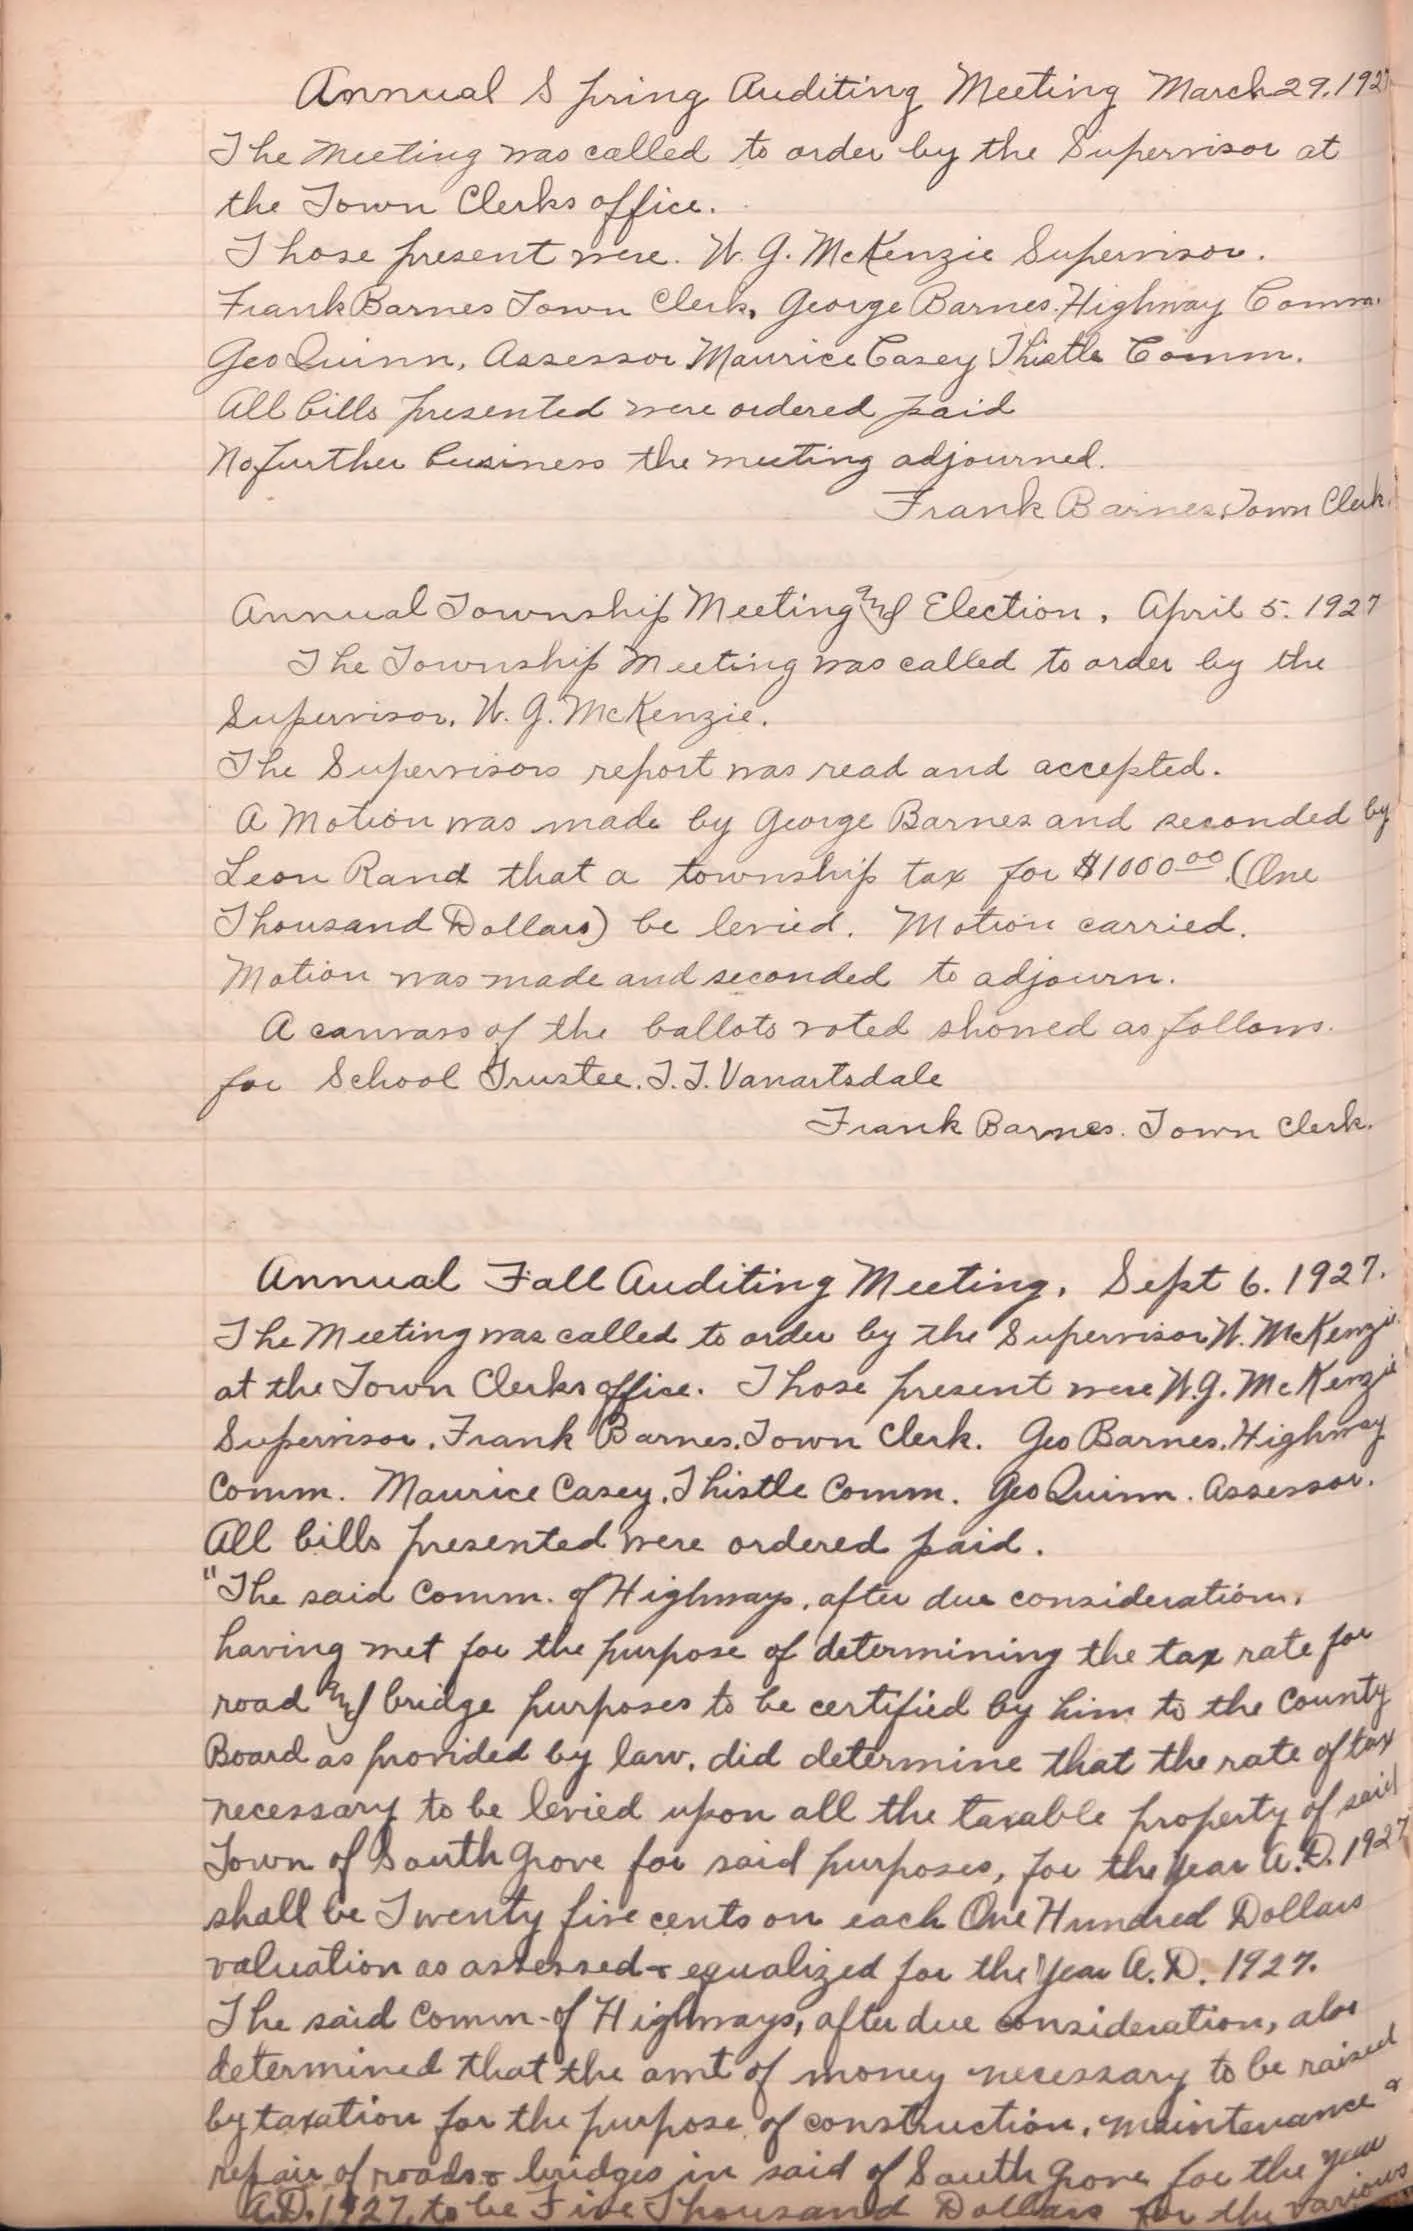 Annual Spring Auditing Meeting March 29. 1927
The Meeting was called to order by the Supervisor at
the Town Clerks office.
Those present were. W. G. McKenzie Supervisor.
Frank Barnes Town Clerk, George Barnes. Highway Comm.
Geo Quinn, Assessor Maurice Casey Thistle Comm.
All bills presented were ordered paid
No further business the meeting adjourned.
Frank Barnes, Town Clerk.
Annual Township Meeting and Election, April 5. 1927
The Township Meeting was called to order by the
Supervisor, W. G. McKenzie.
The Supervisors report was read and accepted.
A Motion was made by George Barnes and seconded by
Leon Rand that a township tax for $1000 00 (One
Thousand Dollars) be levied. Motion carried.
Motion was made and seconded to adjourn.
A canvass of the ballots voted showed as follows.
for School Trustee. T. T. Vanartsdale
Frank Barnes. Town Clerk.
Annual Fall Auditing Meeting, Sept 6. 1927.
The Meeting was called to order by the Supervisor W. McKenzie.
at the Town Clerks office. Those present were W.G. McKenzie
Supervisor, Frank Barnes, Town Clerk. Geo Barnes, Highway
Comm. Maurice Casey, Thistle Comm. Geo Quinn. Assessor.
All bills presented were ordered paid.
"The said Comm. of Highways, after due consideration,
having met for the purpose of determining the tax rate for
road and bridge purposes to be certified by him to the County
Board as provided by law, did determine that the rate of tax
necessary to be levied upon all the taxable property of said
Town of South Grove for said purposes, for the year A.D. 1927
shall be Twenty five cents on each One Hundred Dollars
valuation as assessed & equalized for the year A.D. 1927.
The said Comm. of Highways, after due consideration, also
determined that the amt of money necessary to be raised
by taxation for the purpose of construction, maintenance &
repair of roads & bridges in said of South Grove for the year
A.D. 1927, to be Five Thousand Dollars for the various